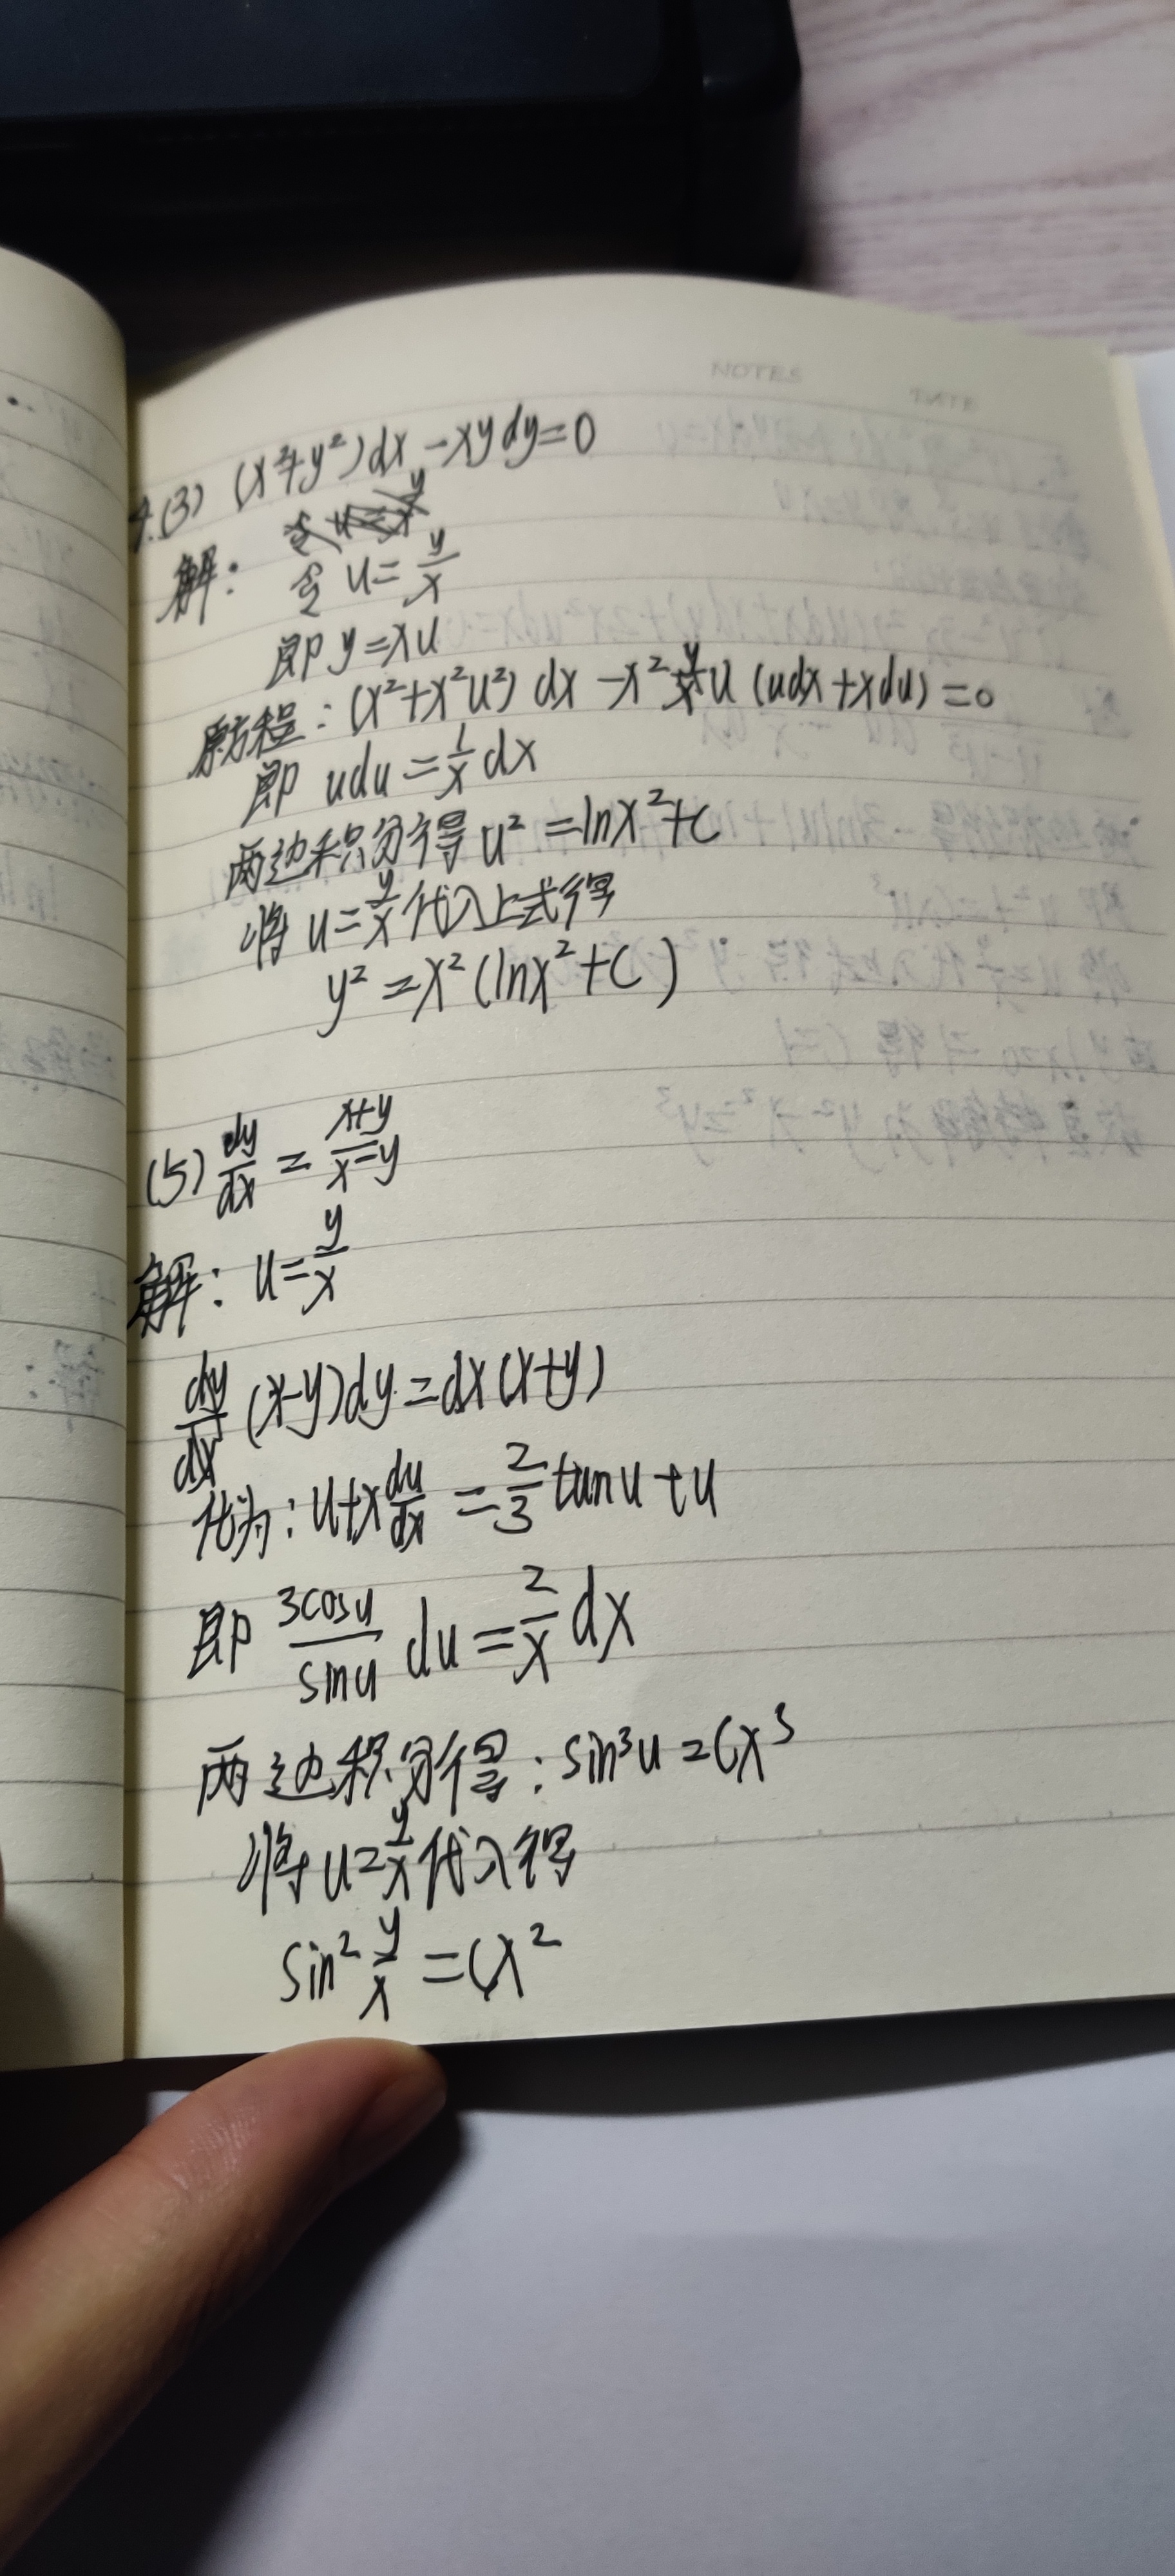 NOTES
DATE
4.(3) (x²+y²)dx-xydy=0
解: 令 u=y/x
即 y=xu
原方程: (x²+x²u²) dx -x²u (udx+xdu)=0
即 udu=1/x dx
两边积分得 u²=lnx²+C
将 u=y/x 代入上式得
y²=x²(lnx²+C)
(5) dy/dx = (x+y)/(x-y)
解: u=y/x
dy/dx (x-y)dy=dx(x+y)
化为: u+x du/dx = 2/3 tanu+u
即 3cosu/sinu du = 2/x dx
两边积分得: sin³u=Cx³
将 u=y/x 代入得
sin² y/x = Cx²